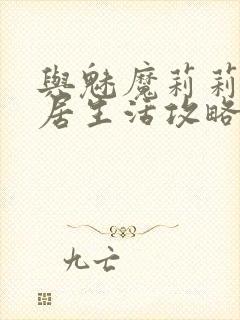 與魅魔莉莉
居生活攻略
九亡